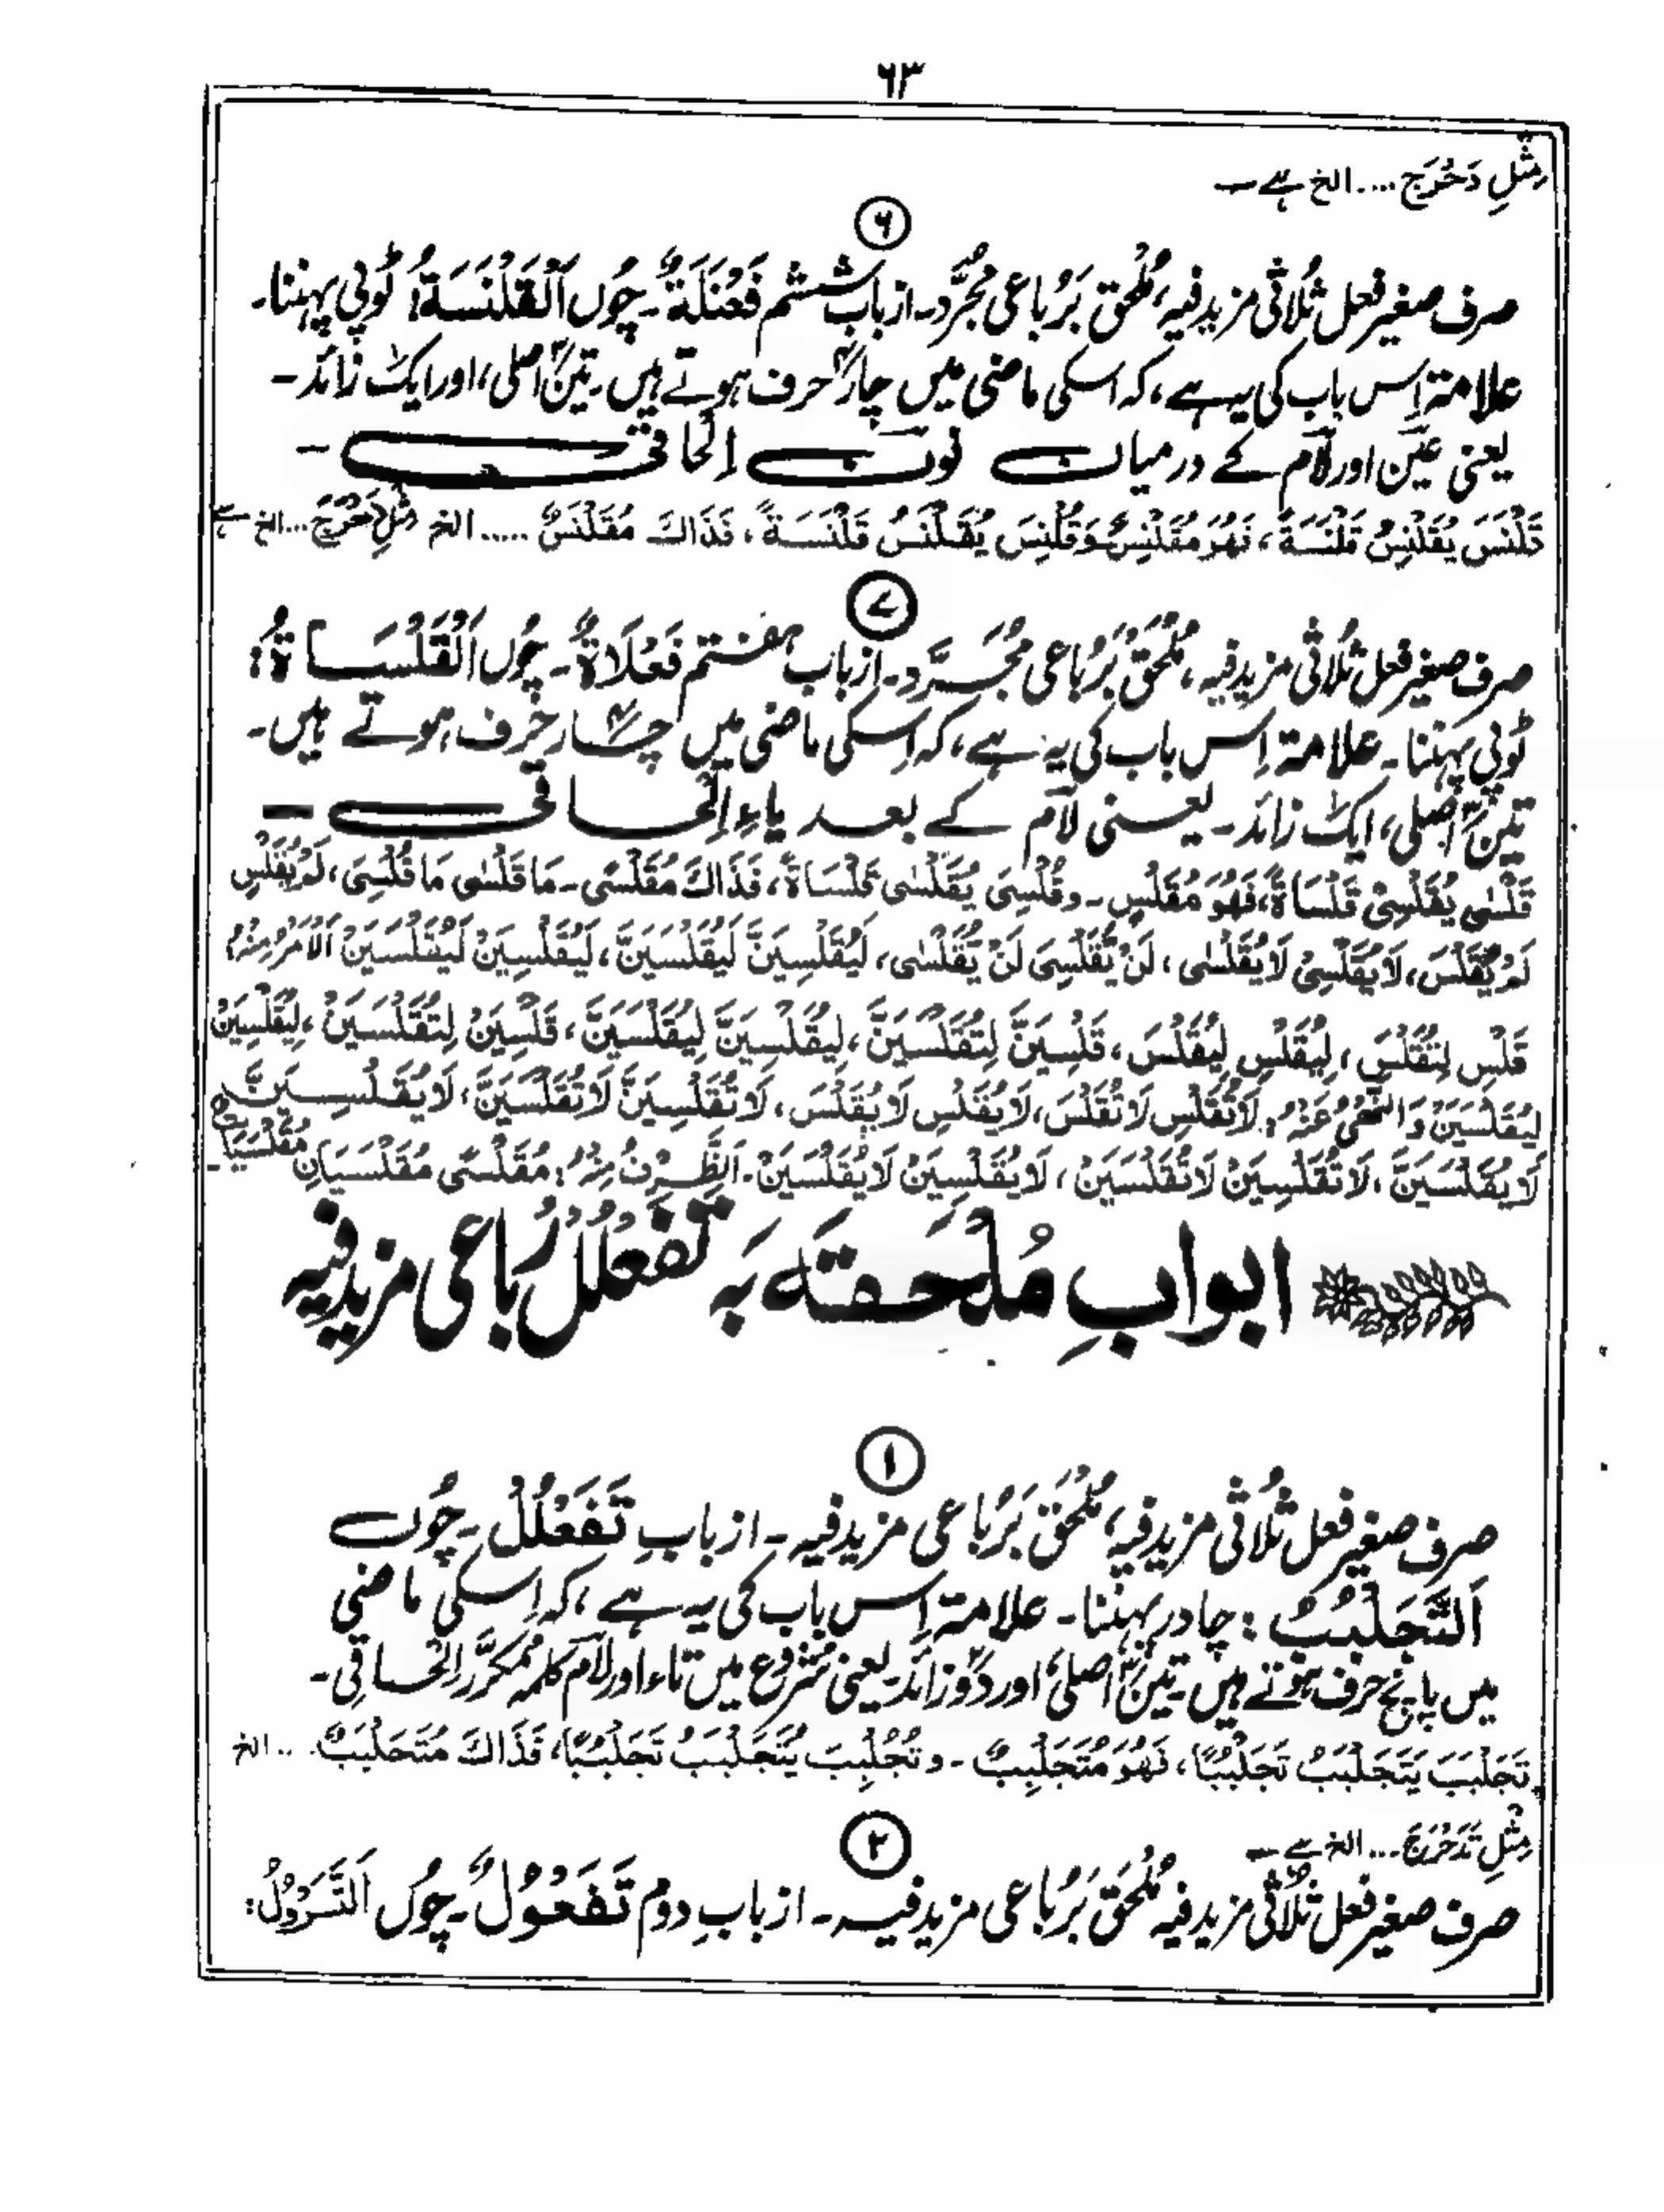 ٦٣
مِثْلِ دَحْرَجَ .... الخ ہے۔
٦
صرف صغیر فعل ثُلاثی مزید فیہ، مُلْحَق بَرُباعی مُجَرَّد۔ از باب ششم فَعْنَلَةٌ۔ چُوں اَلْقَلْنَسَةُ: ٹوپی پہننا۔
علامة اِس باب کی یہ ہے، کہ اسکی ماضی میں چار حرف ہوتے ہیں۔ تین اصلی، اور ایک زائد۔
یعنی عین اور لام کے درمیان نون اِلْحاقی۔
قَلْنَسَ يُقَلْنِسُ قَلْنَسَةً، فَهُوَ مُقَلْنِسٌ وَقُلْنِسَ يُقَلْنَسُ قَلْنَسَةً، فَذَاكَ مُقَلْنَسٌ ..... الخ مِثْلِ دَحْرَجَ ... الخ ہے
۷
صرف صغیر فعل ثُلاثی مزید فیہ، مُلْحَق بَرُباعی مُجَرَّد۔ از باب ہفتم فَعْلَاةٌ۔ چُوں اَلْقَلْسَاةُ:
ٹوپی پہننا۔ علامة اِس باب کی یہ ہے، کہ اِسکی ماضی میں چار حرف ہوتے ہیں۔
تین اصلی، ایک زائد۔ یعنی لام کے بعد یاءِ اِلْحاقی۔
قَلْسٰى يُقَلْسِىْ قَلْسَاةً، فَهُوَ مُقَلْسٍ۔ وقُلْسِىَ يُقَلْسٰى قَلْسَاةً، فَذَاكَ مُقَلْسًى۔ مَا قَلْسٰى مَا قُلْسِىَ، لَمْ يُقَلْسِ
لَمْ يُقَلْسَ، لَا يُقَلْسِىْ لَا يُقَلْسٰى، لَنْ يُّقَلْسِىَ لَنْ يُّقَلْسٰى، لَيُقَلْسِيَنَّ لَيُقَلْسَيَنَّ، لَيُقَلْسِيَنْ لَيُقَلْسَيَنْ اَلْاَمْرُ مِنْهُ:
قَلْسِ لِتُقَلْسَ، لِيُقَلْسِ لِيُقَلْسَ، قَلْسِيَنَّ لِتُقَلْسَيَنَّ، لِيُقَلْسِيَنَّ لِيُقَلْسَيَنَّ، قَلْسِيَنْ لِتُقَلْسَيَنْ، لِيُقَلْسِيَنْ
لِيُقَلْسَيَنْ وَالنَّهْىُ عَنْهُ: لَا تُقَلْسِ لَا تُقَلْسَ، لَا يُقَلْسِ لَا يُقَلْسَ، لَا تُقَلْسِيَنَّ لَا تُقَلْسَيَنَّ، لَا يُقَلْسِيَنَّ
لَا يُقَلْسَيَنَّ، لَا تُقَلْسِيَنْ لَا تُقَلْسَيَنْ، لَا يُقَلْسِيَنْ لَا يُقَلْسَيَنْ۔ اَلظَّرْفُ مِنْهُ: مُقَلْسًى مُقَلْسَيَانِ مُقَلْسَيَاتٌ۔
ابوابِ مُلْحَقَہ بَہ تَفَعْلُلُ رُباعی مزید فیہ
١
صرف صغیر فعل ثُلاثی مزید فیہ، مُلْحَق بَرُباعی مزید فیہ۔ از بابِ تَفَعْلُلُ۔ چُوں
اَلتَّجَلْبُبُ: چادر پہننا۔ علامة اِس باب کی یہ ہے، کہ اِسکی ماضی
میں پانچ حرف ہوتے ہیں۔ تین اصلی، اور دو زائد۔ یعنی شروع میں تاء اور لام کلمہ مُکرَّر اِلْحاقی۔
تَجَلْبَبَ يَتَجَلْبَبُ تَجَلْبُبًا، فَهُوَ مُتَجَلْبِبٌ۔ وتُجُلْبِبَ يُتَجَلْبَبُ تَجَلْبُبًا، فَذَاكَ مُتَجَلْبَبٌ ... الخ
مِثْلِ تَدَحْرَجَ ... الخ ہے۔
٢
صرف صغیر فعل ثُلاثی مزید فیہ مُلْحَق بَرُباعی مزید فیہ۔ از بابِ دوم تَفَعْوُلٌ۔ چُوں اَلتَّسَرْوُلُ: